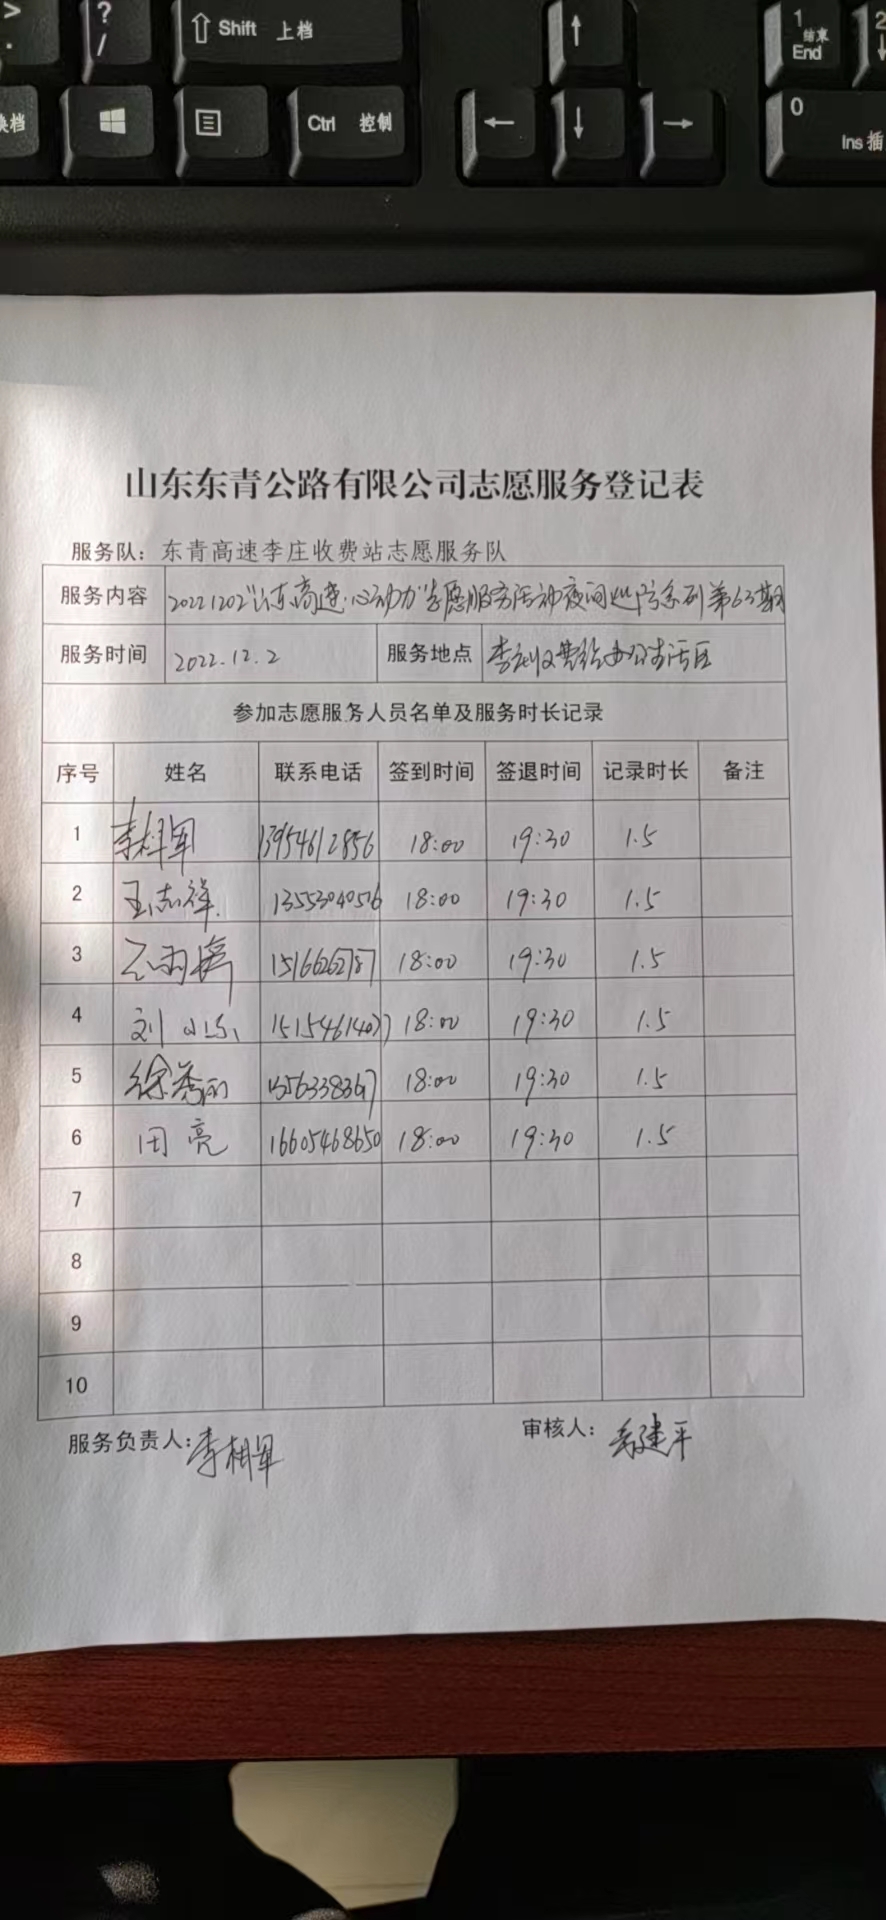 > ? Shift 上档 ↑ 1 结束 End 2
. / ↓
换档 Ctrl 控制 ← ↓ → 0 Ins 插
山东东青公路有限公司志愿服务登记表
服务队：东青高速李庄收费站志愿服务队
服务内容 20221202"东高速·心动力"志愿服务活动夜间巡防系列第63期
服务时间 2022.12.2 服务地点 李庄收费站办公生活区
参加志愿服务人员名单及服务时长记录
序号 姓名 联系电话 签到时间 签退时间 记录时长 备注
1 李相军 13954612856 18:00 19:30 1.5
2 王志祥 13553040516 18:00 19:30 1.5
3 18:00 19:30 1.5
4 刘 18:00 19:30 1.5
5 徐秀丽 18:00 19:30 1.5
6 田亮 16605468650 18:00 19:30 1.5
7
8
9
10
服务负责人：李相军 审核人：建平